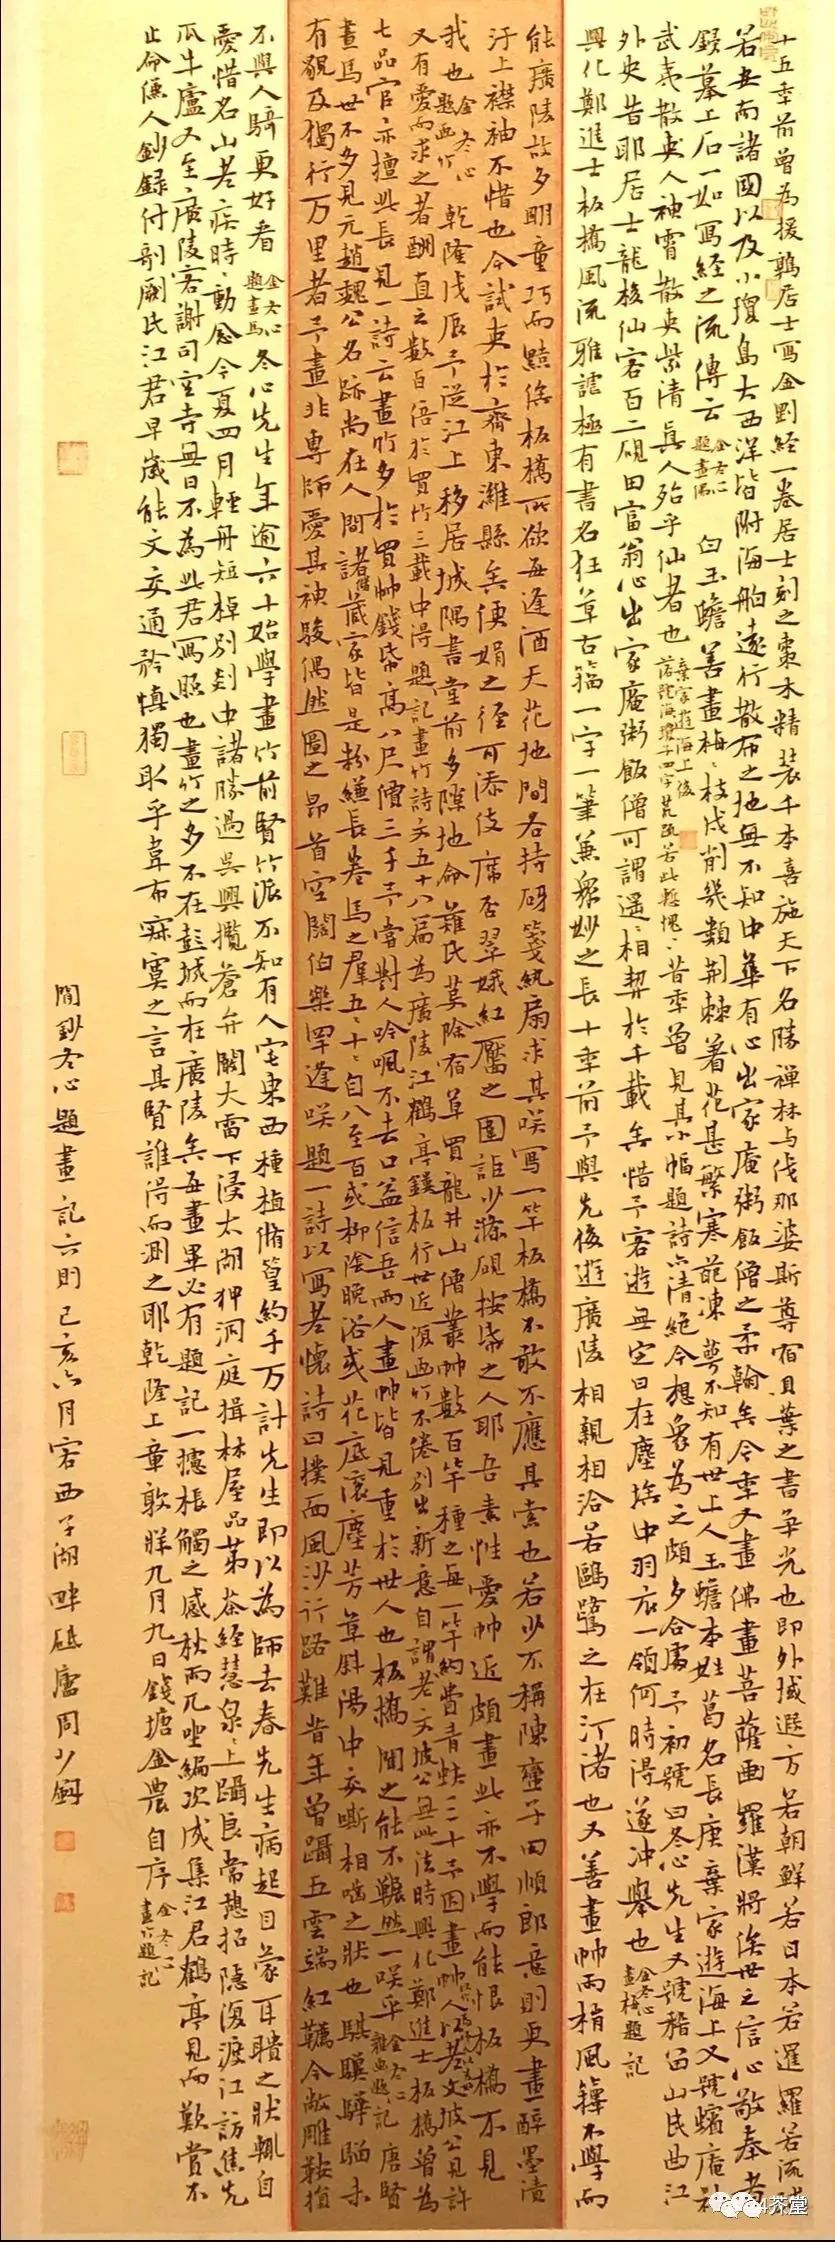 十五季前曾為援鶉居士寫金剛經一卷居士刻之棗木精裝千本喜施天下名勝禪林与伐那婆斯尊宿貝葉之書爭光也即外域遐方若朝鮮若日本若暹羅若流球
若安南諸國以及小瓊島大西洋皆附海舶遠行散布之地無不知中華有心出家庵粥飯僧之柔翰矣今季又畫佛畫菩薩畫羅漢將俟世之信心敬奉者
鋟摹上石一如寫經之流傳云 金冬心題畫佛 白玉蟾善畫梅梅枝戍削幾類荆棘著花甚繁寒葩凍萼不知有世上人玉蟾本姓葛名長庚棄家遊海上又號蠙庵
武夷散吏人神霄散吏紫清真人殆乎仙者也 昔季曾見其小幅題詩六清絕今想象為之頗多合處予初號曰冬心先生又號稽留山民曲江
外史昔耶居士龍梭仙客百二硯田富翁心出家庵粥飯僧可謂遥遥相契於千載矣惜予客遊無定日在塵埃中羽衣一領何時得遂冲舉也 金冬心畫梅題記
興化鄭進士板橋風流雅謔極有書名狂草古籀一字一筆兼眾妙之長十季前予與先後遊廣陵相親相洽若鷗鷺之在汀渚也又善畫竹雨梢風籜不學而
能廣陵故多明童巧而黠俟板橋所欲每逢酒天花地間各持砑箋紈扇求其咲寫一竿板橋不敢不應其索也若少不稱陳蠻子田順郎意則更畫醉墨漬
汙上襟袖不惜也今試吏於齊東濰縣矣便娟之徑可添伎席否翠娥紅靨之圍詎少滌硯按帋之人耶吾素性愛竹近頗畫此亦不學而能恨板橋不見
我也 金冬心題畫竹 乾隆戊辰予從江上移居城隅書堂前多隙地命薙氏芟除宿草買龍井山僧叢竹數百竿種之每一竿約費青蚨三十予因畫竹人以老文坡公見許
又有愛而求之者酬直之數百倍於買竹三載中得題記畫竹詩文五十八篇為廣陵江鶴亭鋟板行世近復畫竹不倦別出新意自謂老文坡公無此法時興化鄭進士板橋曾為
七品官亦擅此長見一詩云畫竹多於買竹錢帋高八尺價三千予嘗對人吟諷不去口益信吾兩人畫竹皆見重於世人也板橋聞之能不囅然一咲乎 金冬心雜畫題記 唐賢
畫馬世不多見元趙魏公名跡尚在人間諸儲藏家皆是粉縑長卷馬之羣五五十十自八至百或柳陰晚浴或花底滾塵芳草斜陽中交嘶相齧之狀也騏驥驊騮未
有覩及獨行万里者予畫非專師愛其神駿偶然圖之昂首空闊伯樂罕逢咲題一詩以寫老懷詩曰撲面風沙行路難昔年曾躡五雲端紅韉今敝雕鞍損
不與人騎更好看 金冬心題畫馬 冬心先生年逾六十始學畫竹前賢竹派不知有人宅東西種植脩篁約千万計先生即以為師去春先生病起目蒙耳聵之狀輒自
憂惜名山老疾時時動念今夏四月輕舟短棹別剡中諸勝過吳興攬蒼弁闞大雷下浸太湖狎洞庭揖林屋品苐茶經慧泉泉上躡良常憩招隱復渡江訪焦先
瓜牛廬又至廣陵客謝司空寺無日不為此君寫照也畫竹之多不在彭城而在廣陵矣每畫畢必有題記一攄棖觸之感秋雨兀坐編次成集江君鶴亭見而歎賞不
止命傭人鈔錄付剞劂氏江君早歲能文交通矜慎獨取乎韋布寂寞之言其賢誰得而測之耶乾隆上章敦牂九月九日錢塘金農自序 金冬心畫竹題記
閒鈔冬心題畫記六則己亥六月客西子湖畔 周少劍
4芥堂